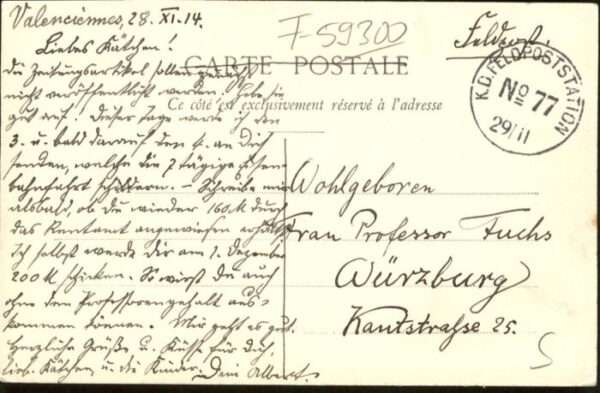 Valenciennes, 28. XI. 14.
Liebes Kätchen!
Die Zeitungsartikel sollen
nicht veröffentlicht werden. Hebe sie
gut auf! Dieser Tage werde ich den
3. u. bald darauf den 4. an Dich
senden, welche die 7 tägige Eisen-
bahnfahrt schildern. – Schreibe mir
alsbald, ob Du wieder 160 M durch
das Rentamt angewiesen erhältst.
Ich selbst werde Dir am 1. Dezember
200 M schicken. So wirst Du auch
ohne den Professorengehalt aus-
kommen können. Mir geht es gut.
Herzliche Grüße u. Küsse für Dich,
lieb. Kätchen u. die Kinder. Dein Albert.
F 59300
Feldpost.
CARTE POSTALE
Ce côté est exclusivement réservé à l'adresse
K.D. FELDPOSTSTATION
No 77
29/11
Wohlgeboren
Frau Professor Fuchs
Würzburg
Kantstraße 25.
S